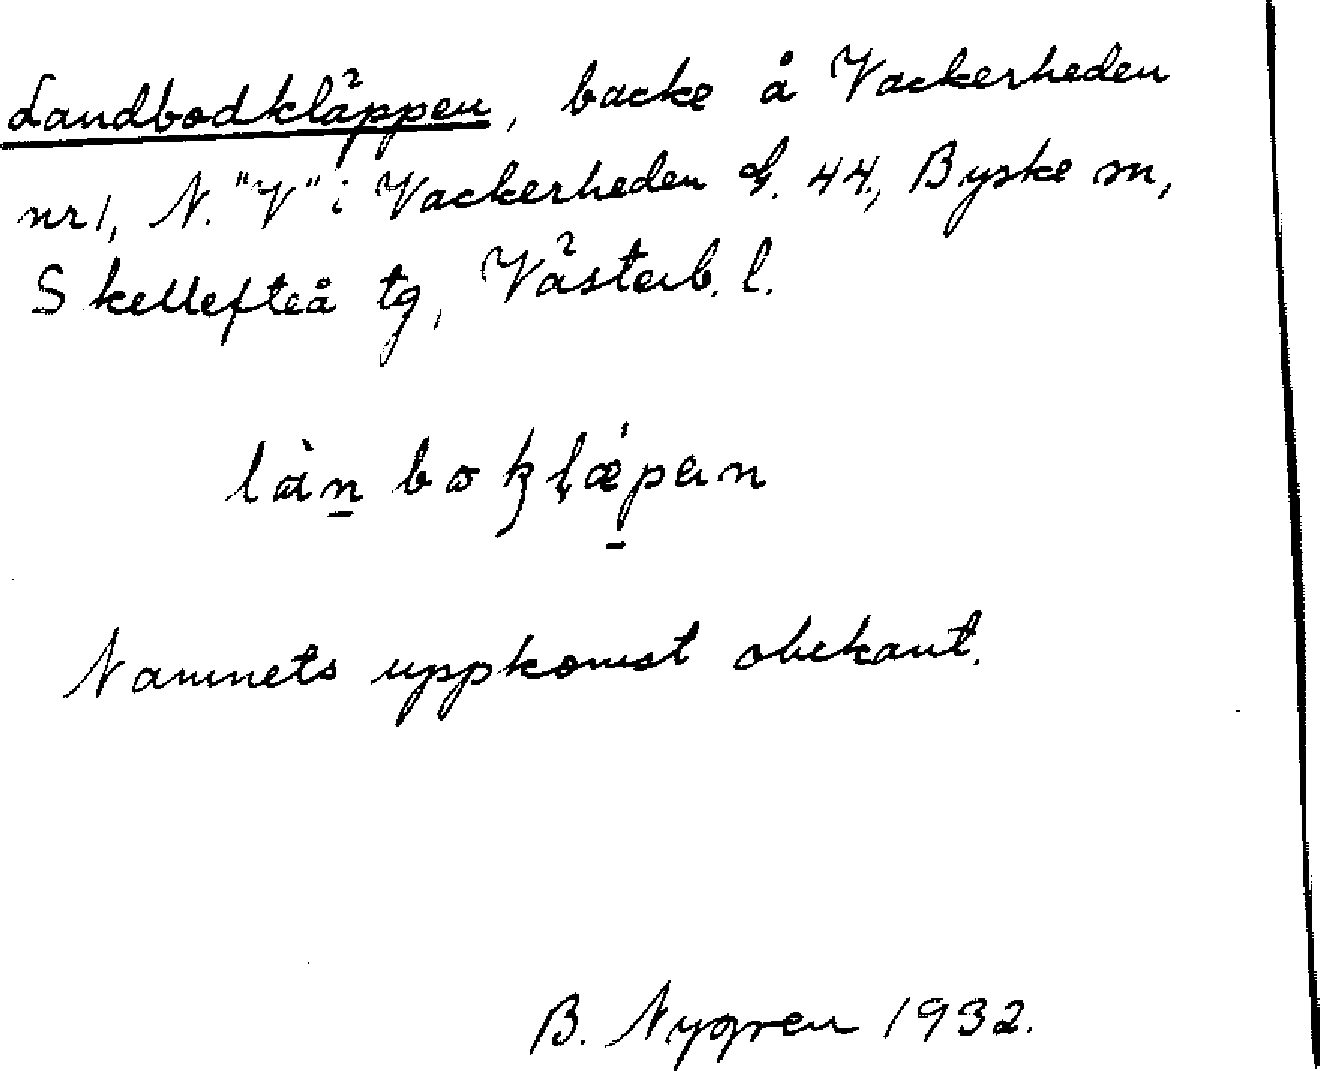 Landbodkläppen, backe å Vackerheden
nr 1, N. "V" i Vackerheden J. 44, Byske sn,
Skellefteå tg, Västerb. l.
làn bo kḷǽpen
Namnets uppkomst obekant.
B. Nygren 1932.